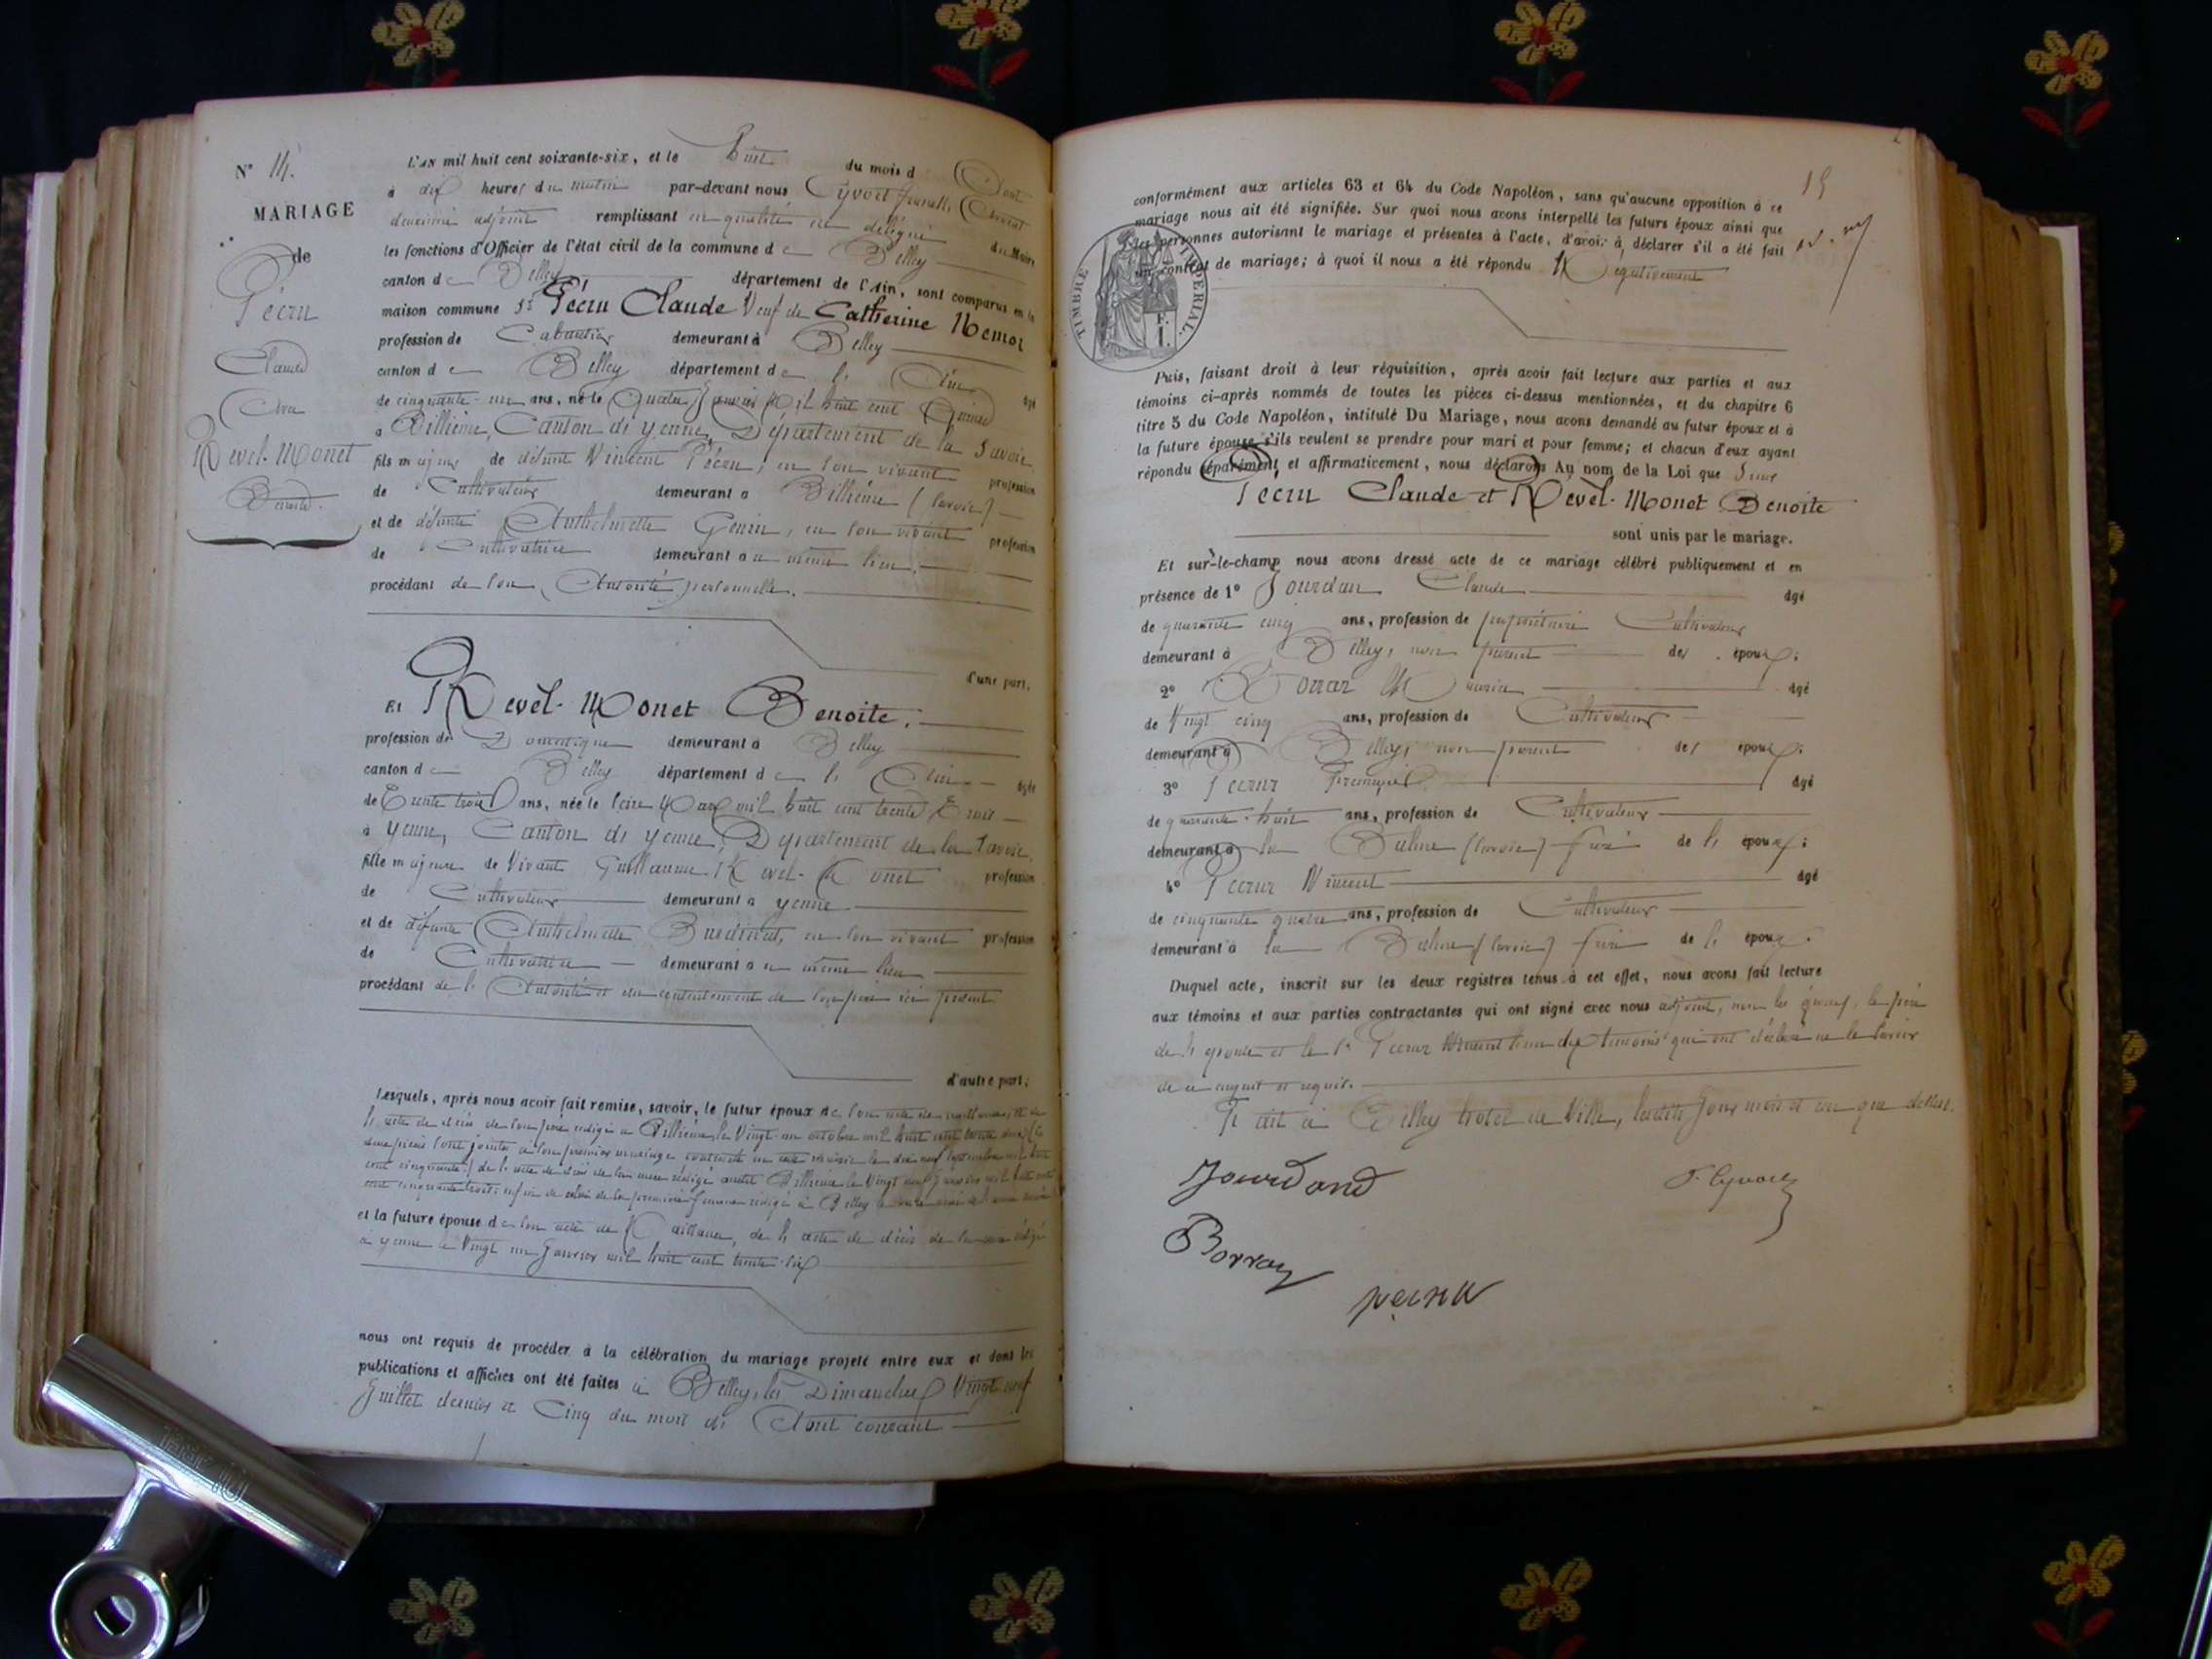 N° 14.
MARIAGE
de
Pécru
Claude
Avec
Revel-Monet
Benoite.
L'AN mil huit cent soixante-six, et le huit du mois d'Août
à dix heures du matin par-devant nous Cyvoct
deuxième adjoint remplissant en qualité de délégué du Maire
les fonctions d'Officier de l'état civil de la commune de Belley
canton de Belley département de l'Ain, sont comparus en la
maison commune Sr Pécru Claude Veuf de Catherine
profession de demeurant à Belley
canton de Belley département de l'Ain âgé
de cinquante-un ans, né le quatre Janvier mil huit cent quinze
à Billième, Canton de Yenne, Département de la Savoie
fils majeur de défunt Vincent Pécru, en son vivant profession
de Cultivateur demeurant à Billième (Savoie)
et de défunte Anthelmette Genin, en son vivant profession
de Cultivatrice demeurant au même lieu,
procédant de son Autorité personnelle.
d'une part,
Et Revel-Monet Benoite,
profession de Domestique demeurant à Belley
canton de Belley département de l'Ain âgée
de Trente trois ans, née le seize Mars mil huit cent trente trois
à Yenne, Canton de Yenne, Département de la Savoie,
fille majeure de vivant Guillaume Revel-Monet profession
de Cultivateur demeurant à Yenne
et de défunte Anthelmette en son vivant profession
de Cultivatrice demeurant au même lieu
procédant de l'Autorité et du consentement de son père ici présent
d'autre part;
Lesquels, après nous avoir fait remise, savoir, le futur époux de son acte de naissance, de
l'acte de décès de son père rédigé à Billième le vingt-un octobre mil huit cent trente
deux pièces sont jointes à son premier mariage contracté en cette mairie le dix neuf septembre mil huit
cent cinquante) de l'acte de décès de sa mère rédigé audit Billième le vingt neuf Janvier mil huit cent
cinquante trois, enfin de celui de sa première femme rédigé à Belley
et la future épouse de son acte de Naissance, de l'acte de décès de sa mère rédigé
à Yenne le vingt un Janvier mil huit cent trente-six
nous ont requis de procéder à la célébration du mariage projeté entre eux et dont les
publications et affiches ont été faites à Belley, les Dimanches vingt neuf
Juillet dernier et cinq du mois de Août courant
15
conformément aux articles 63 et 64 du Code Napoléon, sans qu'aucune opposition à ce
mariage nous ait été signifiée. Sur quoi nous avons interpellé les futurs époux ainsi que
les personnes autorisant le mariage et présentes à l'acte, d'avoir à déclarer s'il a été fait
un contrat de mariage; à quoi il nous a été répondu Négativement
TIMBRE IMPERIAL.
F. I.
Puis, faisant droit à leur réquisition, après avoir fait lecture aux parties et aux
témoins ci-après nommés de toutes les pièces ci-dessus mentionnées, et du chapitre 6
titre 5 du Code Napoléon, intitulé Du Mariage, nous avons demandé au futur époux et à
la future épouse s'ils veulent se prendre pour mari et pour femme; et chacun d'eux ayant
répondu séparément et affirmativement, nous déclarons Au nom de la Loi que
Pécru Claude et Revel-Monet Benoite
sont unis par le mariage.
Et sur-le-champ nous avons dressé acte de ce mariage célébré publiquement et en
présence de 1° Jourdan Claude âgé
de quarante cinq ans, profession de propriétaire Cultivateur
demeurant à Belley, non parent des époux;
2° Borraz âgé
de vingt cinq ans, profession de Cultivateur
demeurant à Belley, non parent des époux;
3° Pecrur François âgé
de quarante-huit ans, profession de Cultivateur
demeurant à la Balme (Savoie) frère de l'époux;
4° Pecrur Vincent âgé
de cinquante quatre ans, profession de Cultivateur
demeurant à la Balme (Savoie) frère de l'époux.
Duquel acte, inscrit sur les deux registres tenus à cet effet, nous avons fait lecture
aux témoins et aux parties contractantes qui ont signé avec nous adjoint, non les époux, le père
de l'épouse et le Sr Pecrur Vincent l'un des témoins qui ont déclaré ne le savoir
de ce enquis et requis.
Fait à Belley hotel de Ville, lesdits jour mois et an que dessus.
Jourdand
F. Cyvoct
Borraz